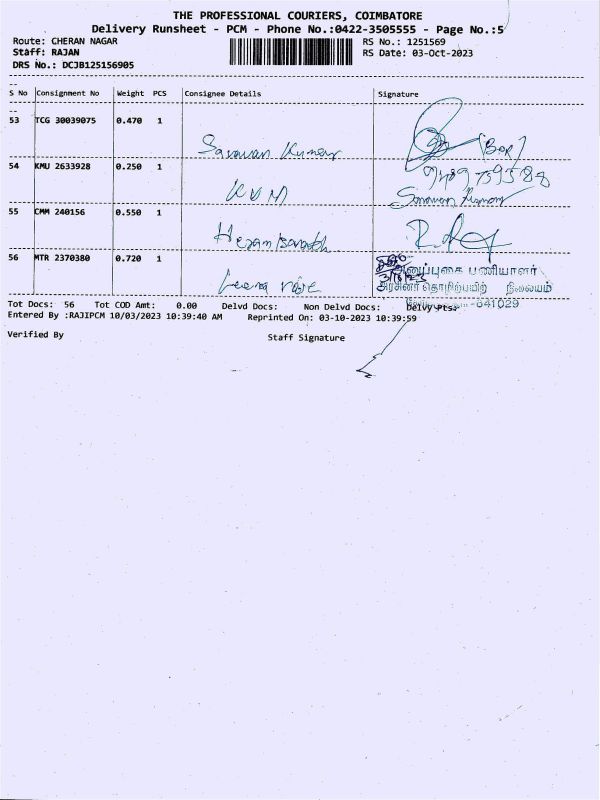 THE PROFESSIONAL COURIERS, COIMBATORE
Delivery Runsheet - PCM - Phone No.:0422-3505555 - Page No.:5
Route: CHERAN NAGAR RS No.: 1251569
Staff: RAJAN RS Date: 03-Oct-2023
DRS No.: DCJB125156905
S No Consignment No Weight PCS Consignee Details Signature
53 TCG 30039075 0.470 1
Saravan Kumar
54 KMU 2633928 0.250 1
KVM Saravan Kumar
55 CMM 240156 0.550 1
56 MTR 2370380 0.720 1
அனுப்புகை பணியாளர்
Leena அரசினர் தொழிற்பயிற் நிலையம்
-641029
Tot Docs: 56 Tot COD Amt: 0.00 Delvd Docs: Non Delvd Docs: Delvy Pts:
Entered By :RAJIPCM 10/03/2023 10:39:40 AM Reprinted On: 03-10-2023 10:39:59
Verified By Staff Signature